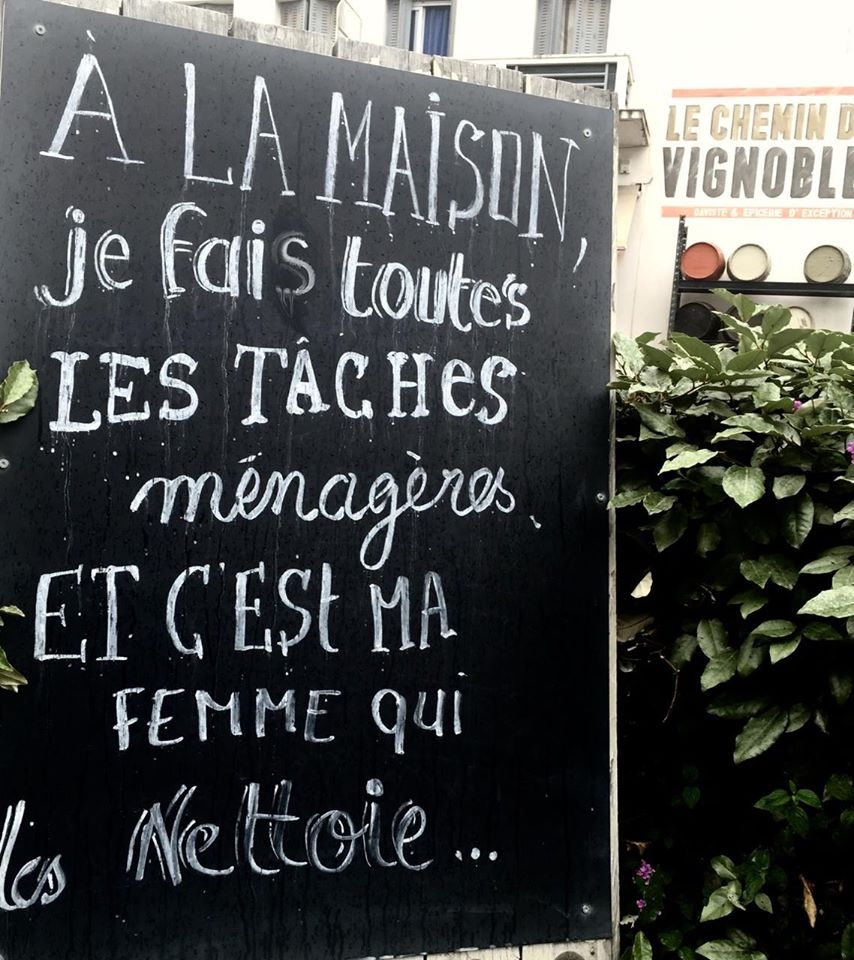 À LA MAISON,
je fais toutes
LES TÂCHES
ménagères
ET C'EST MA
FEMME qui
les Nettoie...
LE CHEMIN D
VIGNOBLE
CAVISTE & EPICERIE D'EXCEPTION